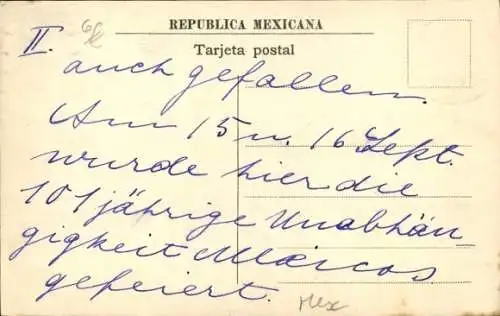 REPUBLICA MEXICANA
Tarjeta postal
II.
auch gefallen.
Am 15 u. 16 Sept.
wurde hier die
101 jährige Unabhän
gigkeit Mexicos
gefeiert.
Mex